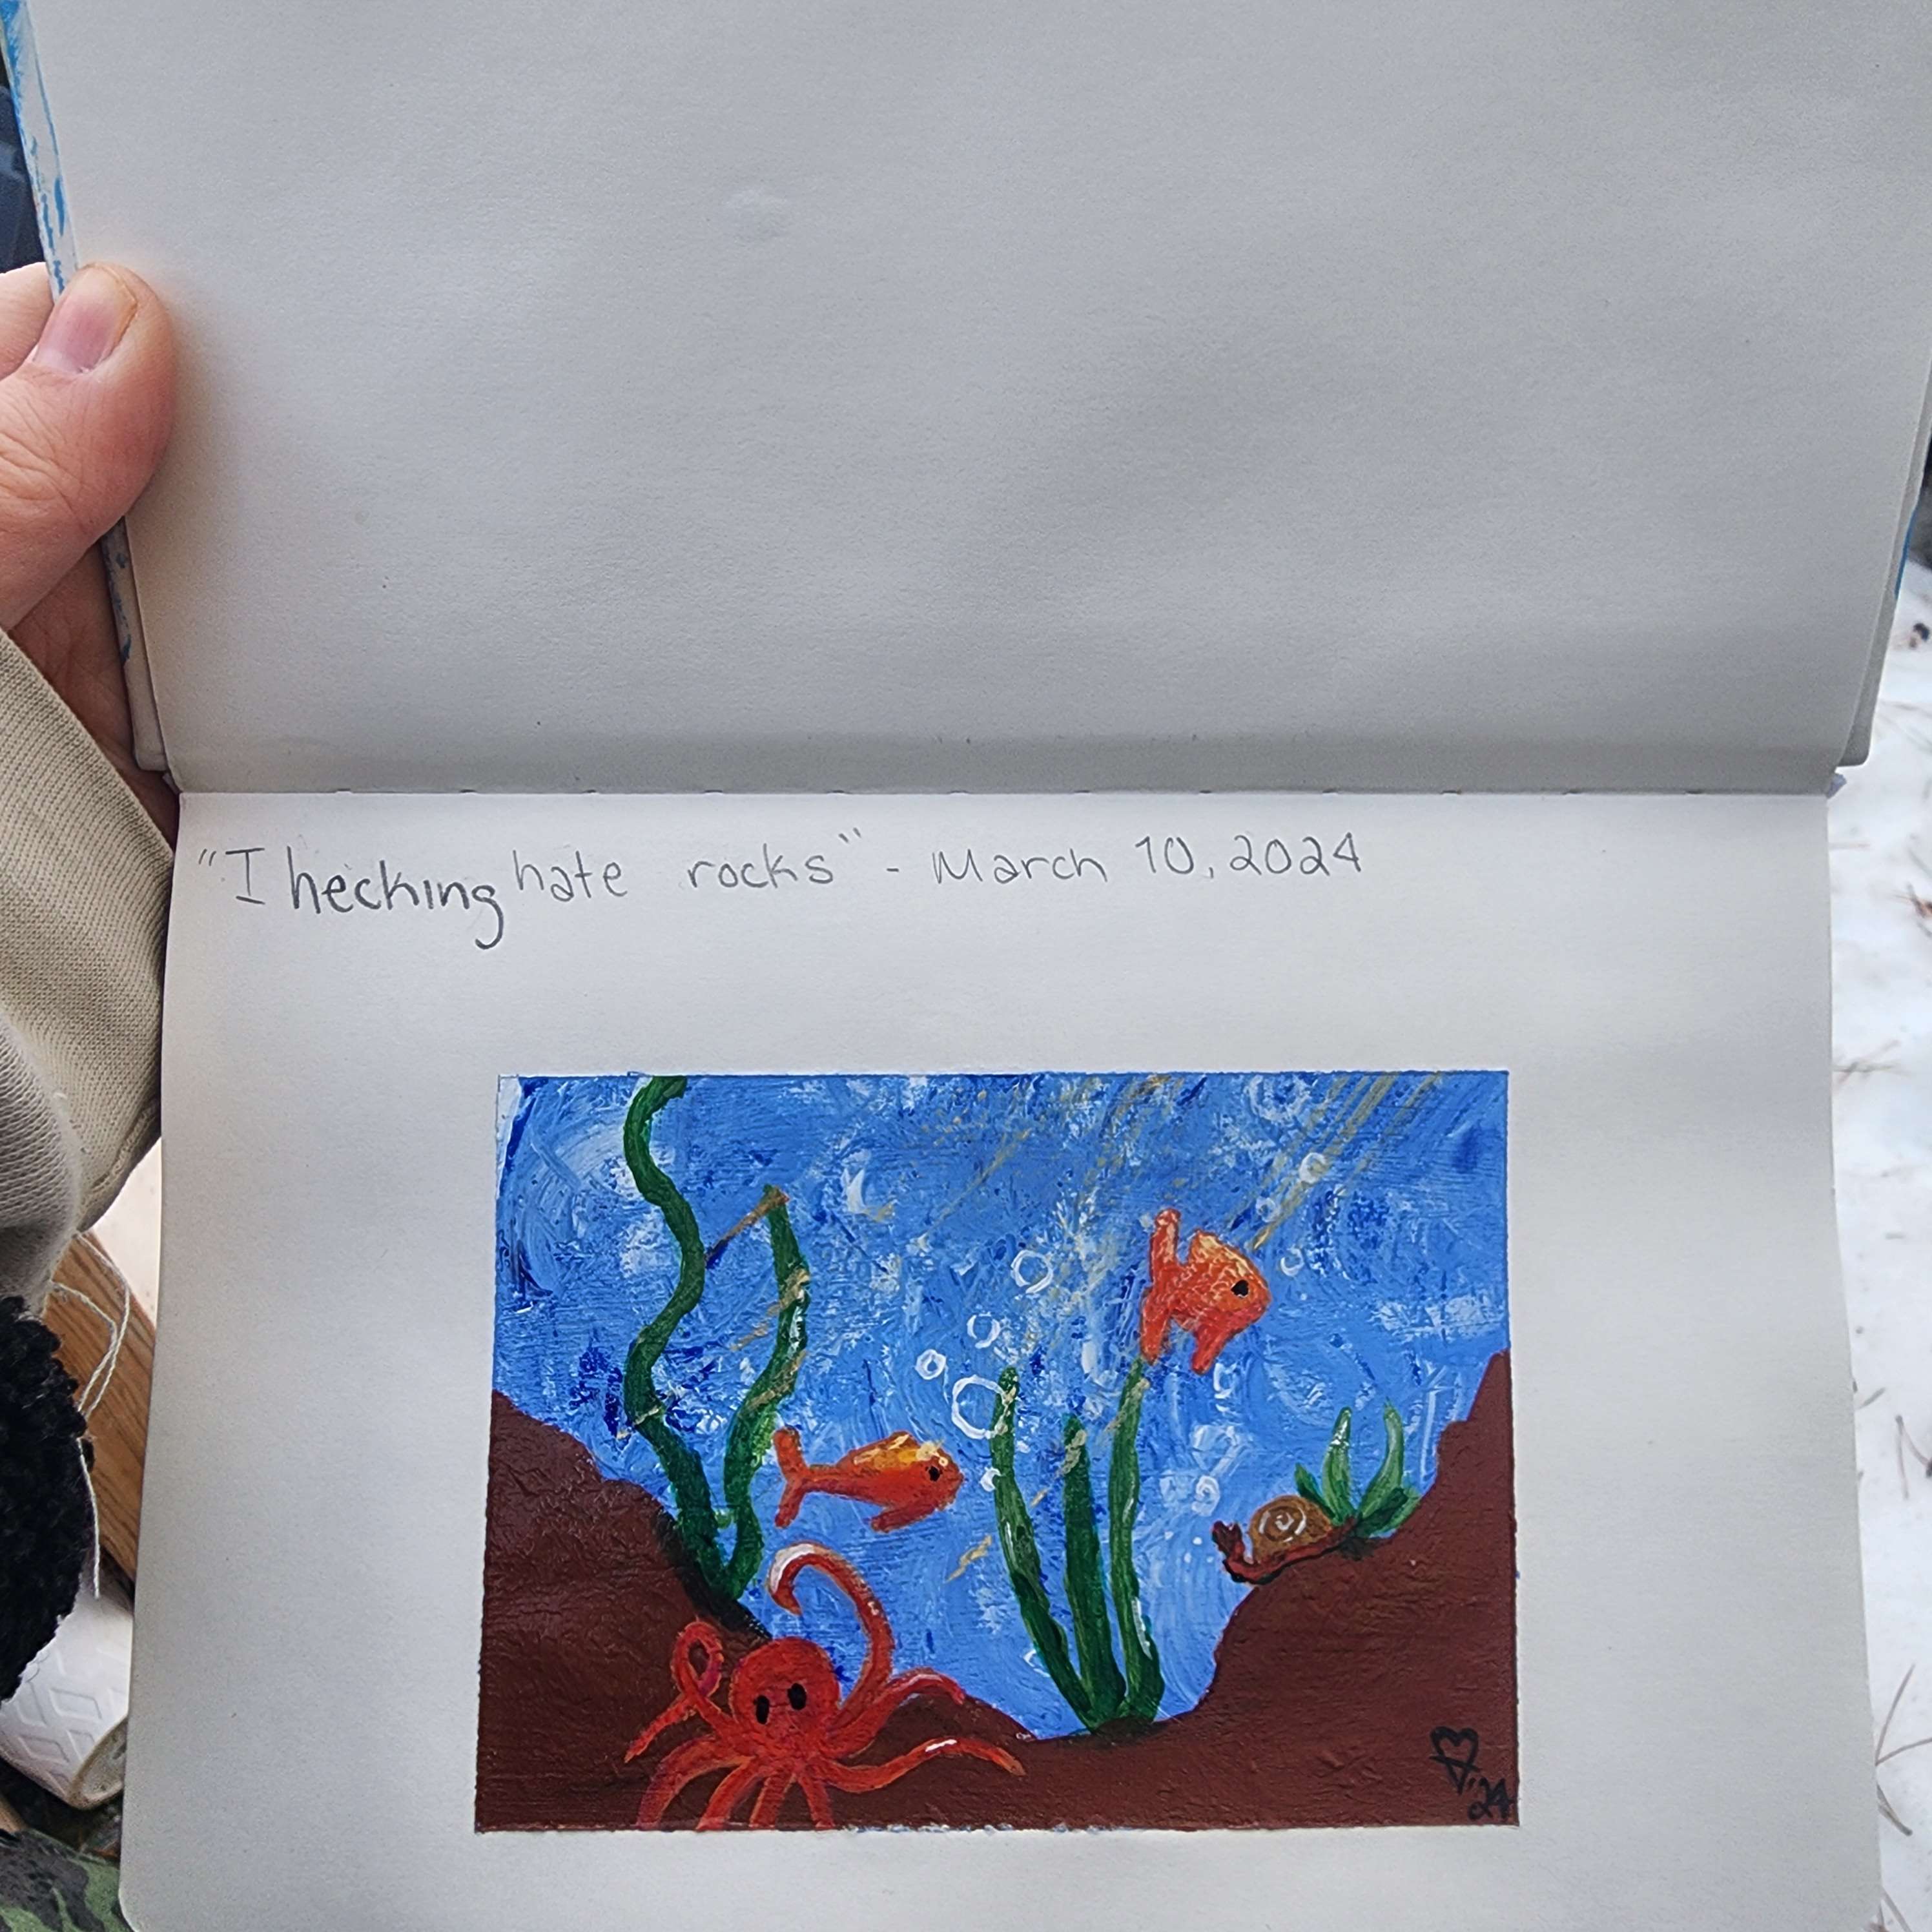 "I hecking hate rocks" - March 10, 2024
'24